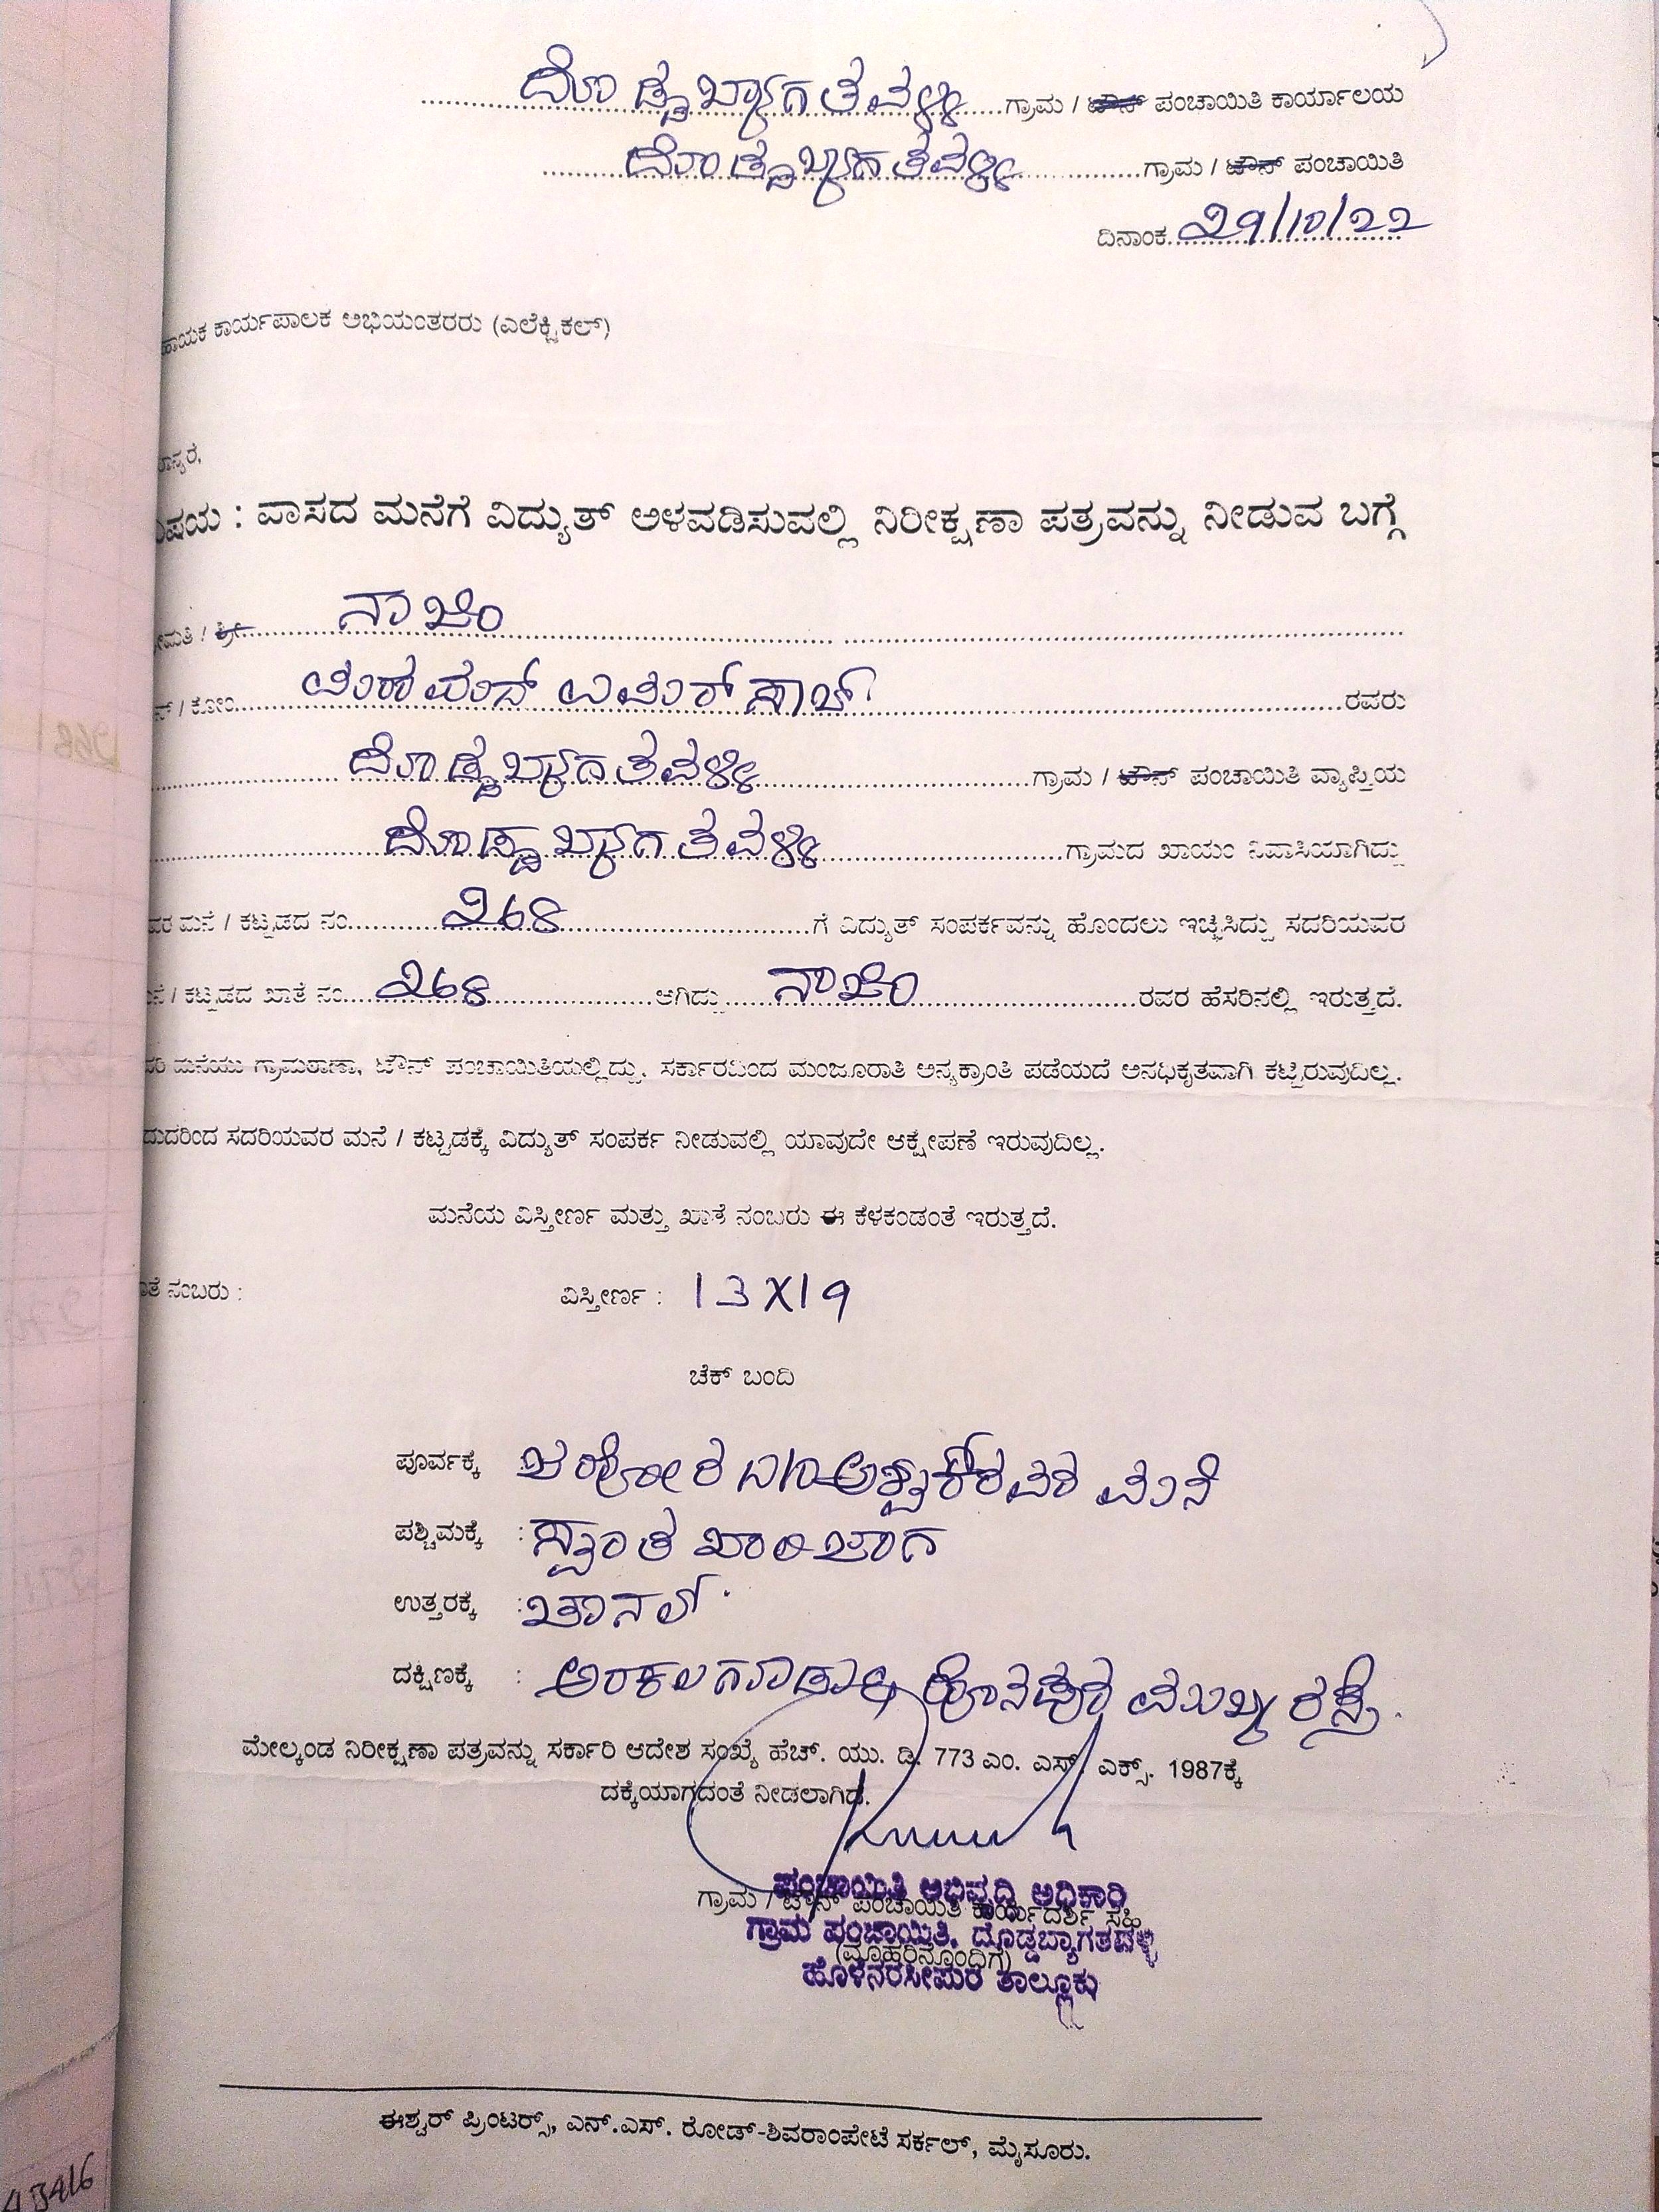 ದೊಡ್ಡಬ್ಯಾಗತವಳ್ಳಿ ಗ್ರಾಮ / ಟೌನ್ ಪಂಚಾಯಿತಿ ಕಾರ್ಯಾಲಯ
ದೊಡ್ಡಬ್ಯಾಗತವಳ್ಳಿ ಗ್ರಾಮ / ಟೌನ್ ಪಂಚಾಯಿತಿ
ದಿನಾಂಕ 29/10/22
ಹಾಯಕ ಕಾರ್ಯಪಾಲಕ ಅಭಿಯಂತರರು (ಎಲೆಕ್ಟ್ರಿಕಲ್)
ಾನ್ಯರೆ,
ವಿಷಯ : ವಾಸದ ಮನೆಗೆ ವಿದ್ಯುತ್ ಅಳವಡಿಸುವಲ್ಲಿ ನಿರೀಕ್ಷಣಾ ಪತ್ರವನ್ನು ನೀಡುವ ಬಗ್ಗೆ
ೀಮತಿ / ಶ್ರೀ ನಾಜಿಂ
ನ್ / ಕೋಂ ಮಹಮದ್ ಉಮರ್ ಸಾಬ್ ರವರು
ದೊಡ್ಡಬ್ಯಾಗತವಳ್ಳಿ ಗ್ರಾಮ / ಟೌನ್ ಪಂಚಾಯಿತಿ ವ್ಯಾಪ್ತಿಯ
ದೊಡ್ಡಬ್ಯಾಗತವಳ್ಳಿ ಗ್ರಾಮದ ಖಾಯಂ ನಿವಾಸಿಯಾಗಿದ್ದು
ವರ ಮನೆ / ಕಟ್ಟಡದ ನಂ 268 ಗೆ ವಿದ್ಯುತ್ ಸಂಪರ್ಕವನ್ನು ಹೊಂದಲು ಇಚ್ಛಿಸಿದ್ದು ಸದರಿಯವರ
ನೆ / ಕಟ್ಟಡದ ಖಾತೆ ನಂ 268 ಆಗಿದ್ದು ನಾಜಿಂ ರವರ ಹೆಸರಿನಲ್ಲಿ ಇರುತ್ತದೆ.
ದರಿ ಮನೆಯು ಗ್ರಾಮಠಾಣಾ, ಟೌನ್ ಪಂಚಾಯಿತಿಯಲ್ಲಿದ್ದು, ಸರ್ಕಾರದಿಂದ ಮಂಜೂರಾತಿ ಅನ್ಯಕ್ರಾಂತಿ ಪಡೆಯದೆ ಅನಧಿಕೃತವಾಗಿ ಕಟ್ಟಿರುವುದಿಲ್ಲ.
ದುದರಿಂದ ಸದರಿಯವರ ಮನೆ / ಕಟ್ಟಡಕ್ಕೆ ವಿದ್ಯುತ್ ಸಂಪರ್ಕ ನೀಡುವಲ್ಲಿ ಯಾವುದೇ ಆಕ್ಷೇಪಣೆ ಇರುವುದಿಲ್ಲ.
ಮನೆಯ ವಿಸ್ತೀರ್ಣ ಮತ್ತು ಖಾತೆ ನಂಬರು ಈ ಕೆಳಕಂಡಂತೆ ಇರುತ್ತದೆ.
ಾತೆ ನಂಬರು : ವಿಸ್ತೀರ್ಣ : 13X19
ಚೆಕ್ ಬಂದಿ
ಪೂರ್ವಕ್ಕೆ : ಮನೆ
ಪಶ್ಚಿಮಕ್ಕೆ : ಸ್ವಂತ ಖಾಲಿ ಜಾಗ
ಉತ್ತರಕ್ಕೆ : ಚಾನಲ್
ದಕ್ಷಿಣಕ್ಕೆ : ಅರಕಲಗೂಡು ಹೊನೆಪುರ ಮುಖ್ಯ ರಸ್ತೆ.
ಮೇಲ್ಕಂಡ ನಿರೀಕ್ಷಣಾ ಪತ್ರವನ್ನು ಸರ್ಕಾರಿ ಆದೇಶ ಸಂಖ್ಯೆ ಹೆಚ್. ಯು. ಡಿ. 773 ಎಂ. ಎಸ್. ಎಕ್ಸ್. 1987ಕ್ಕೆ
ದಕ್ಕೆಯಾಗದಂತೆ ನೀಡಲಾಗಿದೆ.
ಪಂಚಾಯಿತಿ ಅಭಿವೃದ್ಧಿ ಅಧಿಕಾರಿ
ಗ್ರಾಮ / ಟೌನ್ ಪಂಚಾಯಿತಿ ಕಾರ್ಯದರ್ಶಿ ಸಹಿ
ಗ್ರಾಮ ಪಂಚಾಯಿತಿ, ದೊಡ್ಡಬ್ಯಾಗತವಳ್ಳಿ
(ಮೊಹರಿನೊಂದಿಗೆ)
ಹೊಳೆನರಸೀಪುರ ತಾಲ್ಲೂಕು
ಈಶ್ವರ್ ಪ್ರಿಂಟರ್ಸ್, ಎನ್.ಎಸ್. ರೋಡ್-ಶಿವರಾಂಪೇಟೆ ಸರ್ಕಲ್, ಮೈಸೂರು.